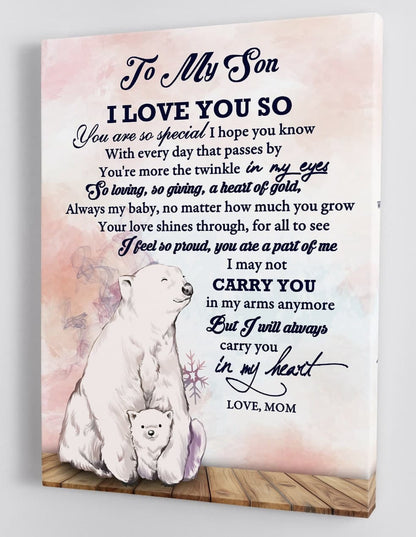 To My Son
I LOVE YOU SO
You are so special I hope you know
With every day that passes by
You're more the twinkle in my eyes
So loving, so giving, a heart of gold,
Always my baby, no matter how much you grow
Your love shines through, for all to see
I feel so proud, you are a part of me
I may not
CARRY YOU
in my arms anymore
But I will always
carry you
in my heart
LOVE, MOM